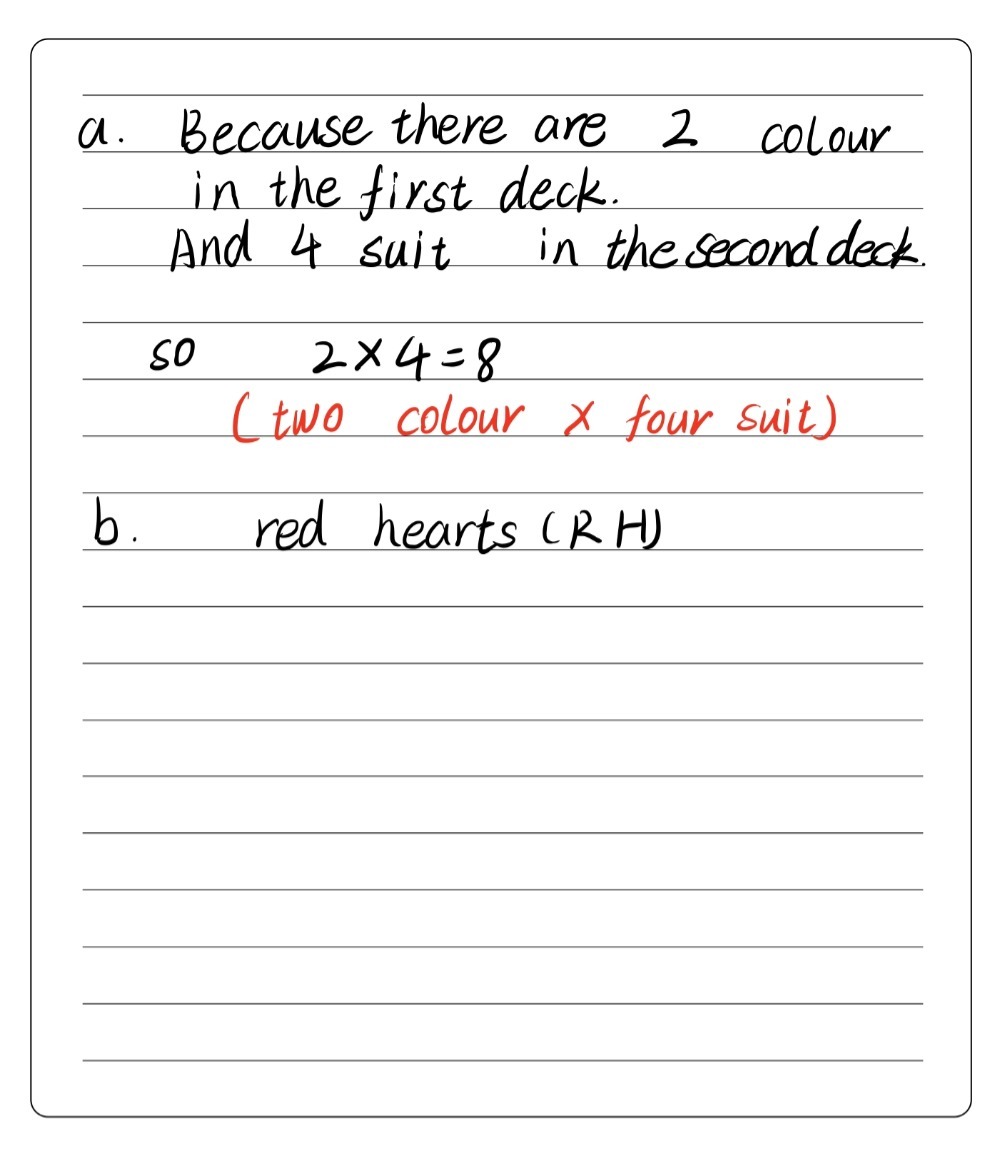 a. Because there are 2 colour
in the first deck.
And 4 suit in the second deck.
so 2×4=8
(two colour × four suit)
b. red hearts (RH)